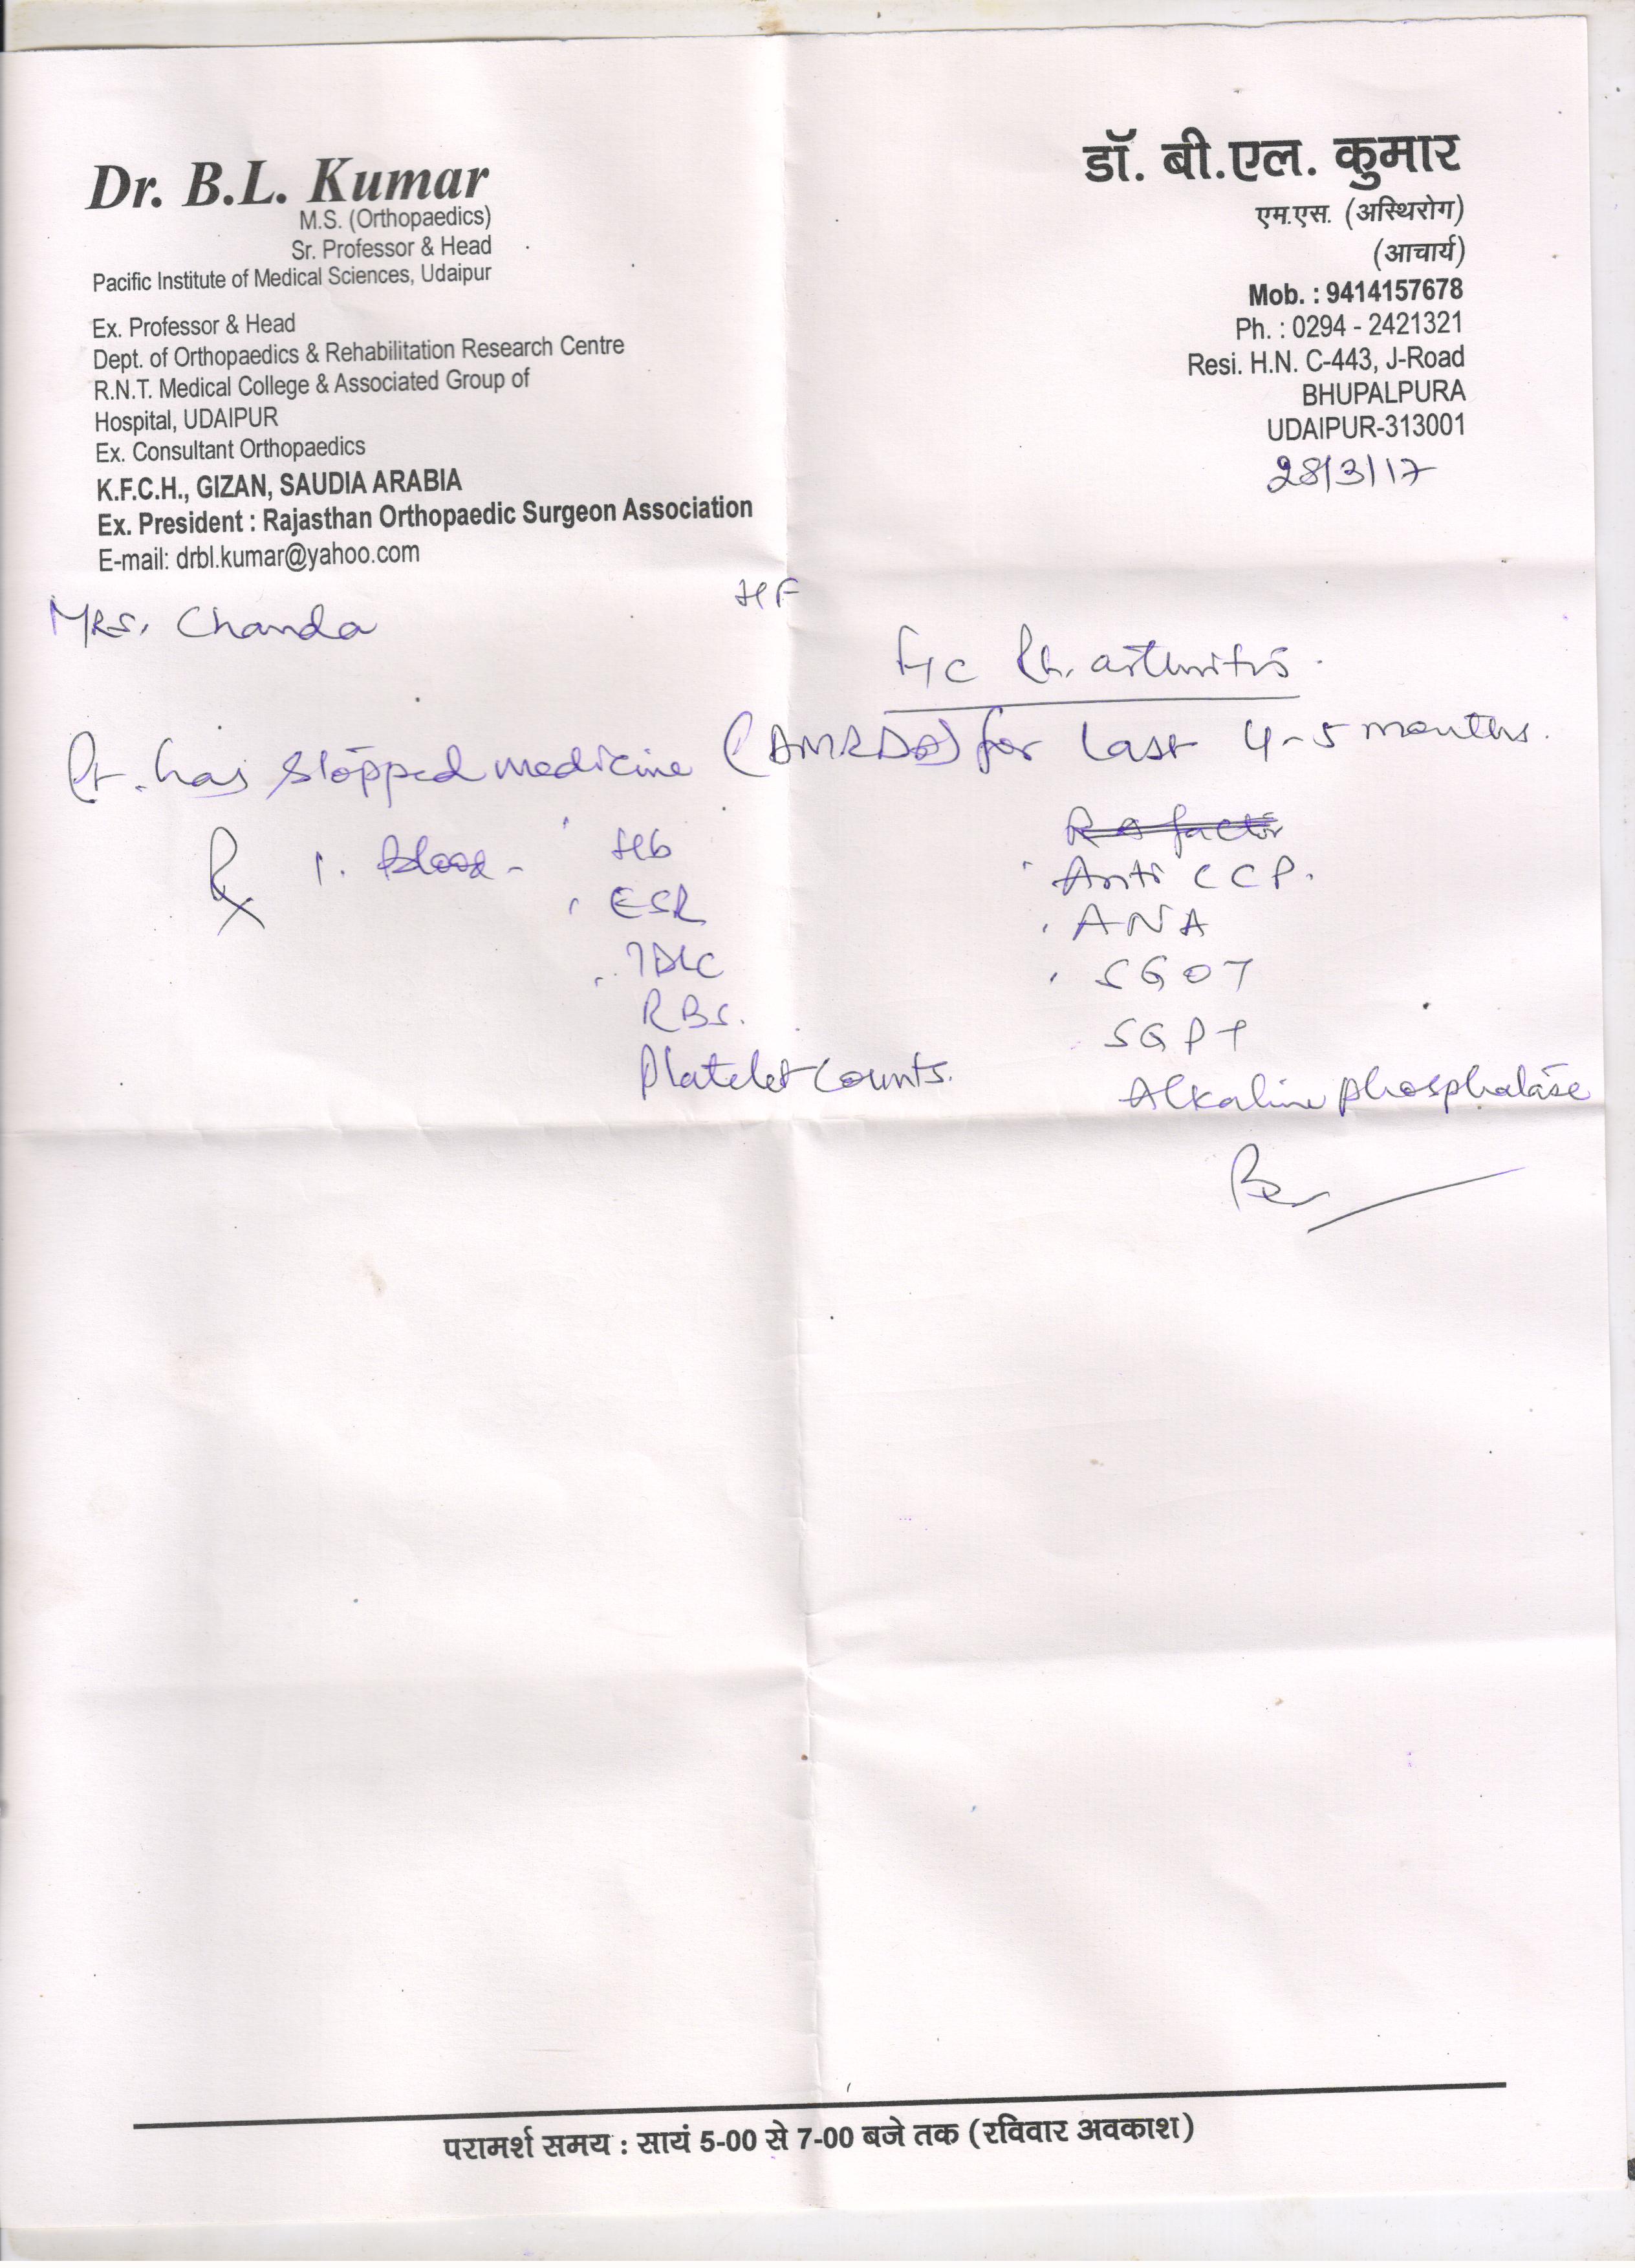 Dr. B.L. Kumar
M.S. (Orthopaedics)
Sr. Professor & Head
Pacific Institute of Medical Sciences, Udaipur
Ex. Professor & Head
Dept. of Orthopaedics & Rehabilitation Research Centre
R.N.T. Medical College & Associated Group of
Hospital, UDAIPUR
Ex. Consultant Orthopaedics
K.F.C.H., GIZAN, SAUDIA ARABIA
Ex. President : Rajasthan Orthopaedic Surgeon Association
E-mail: drbl.kumar@yahoo.com
डॉ. बी.एल. कुमार
एम.एस. (अस्थिरोग)
(आचार्य)
Mob. : 9414157678
Ph. : 0294 - 2421321
Resi. H.N. C-443, J-Road
BHUPALPURA
UDAIPUR-313001
28/3/17
Mrs. Chanda
HF
Rh. arthritis.
Pt. has stopped medicine for last 4-5 months.
Rx 1. Blood - Hb
ESR
TDLC
RBS.
Platelet Counts.
RA factor
Anti CCP.
ANA
SGOT
SGPT
Alkaline phosphatase
परामर्श समय : सायं 5-00 से 7-00 बजे तक (रविवार अवकाश)